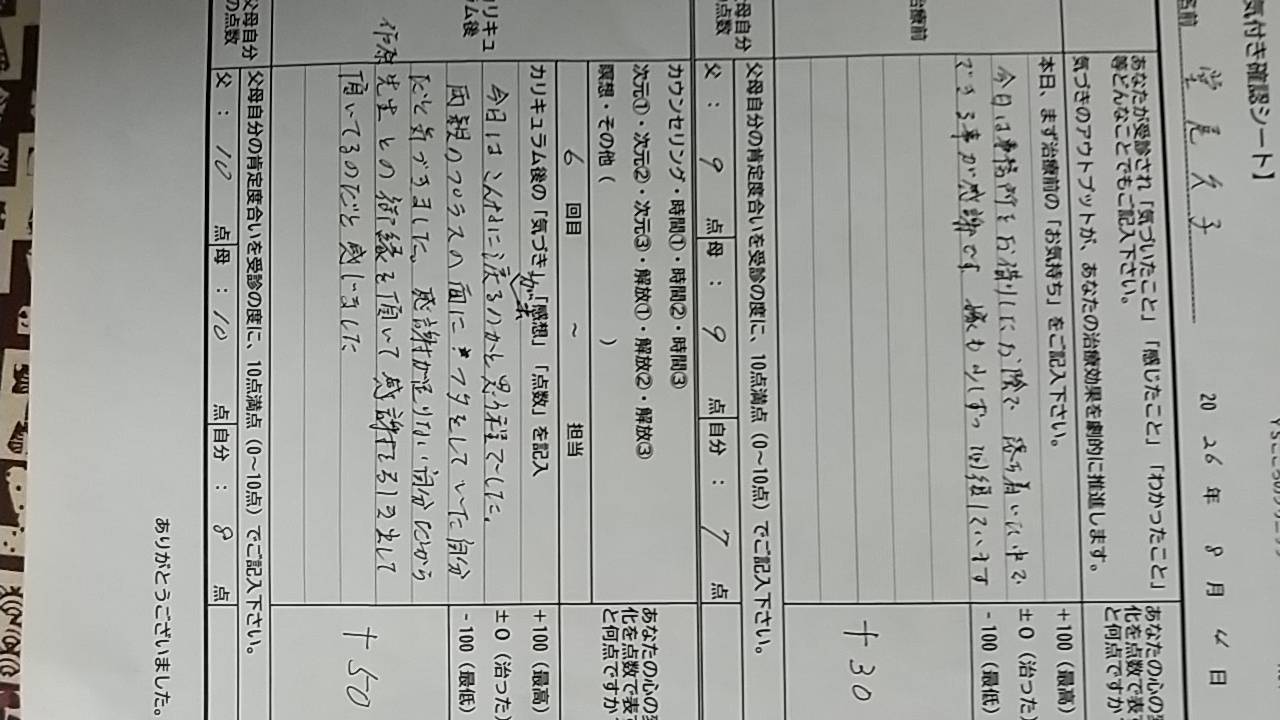 気付き確認シート】
名前 堂尾久子 2026年8月4日
あなたが受診され「気づいたこと」「感じたこと」「わかったこと」
等どんなことでもご記入下さい。
気づきのアウトプットが、あなたの治療効果を劇的に推進します。
本日、まず治療前の「お気持ち」をご記入下さい。
あなたの心の
化を点数で表
と何点ですか
+100(最高)
±0(治った)
-100(最低)
治療前
今日は事務所をお借りしたお陰で 落ち着いた中で
できる事が感謝です 娘も少しずつ回復しています
+30
父母自分の肯定度合いを受診の度に、10点満点(0~10点)でご記入下さい。
父母自分
の点数
父: 9 点 母: 9 点 自分: 7 点
カウンセリング・時間①・時間②・時間③
次元①・次元②・次元③・解放①・解放②・解放③
瞑想・その他( )
6 回目 ~ 担当
カリキュラム後の「気づき」「感想」「点数」を記入
あなたの心の
化を点数で表
と何点ですか
+100(最高)
±0(治った)
-100(最低)
カリキュ
ラム後
今日はこんなに涙が出るのかと思う程でした。
両親のプラスの面にフタをしていた自分
だと気づきました。感謝が足りない自分だから
先生との御縁を頂いて感謝する
頂いてるのだと感じました
+50
父母自分の肯定度合いを受診の度に、10点満点(0~10点)でご記入下さい。
父母自分
の点数
父: 10 点 母: 10 点 自分: 8 点
ありがとうございました。